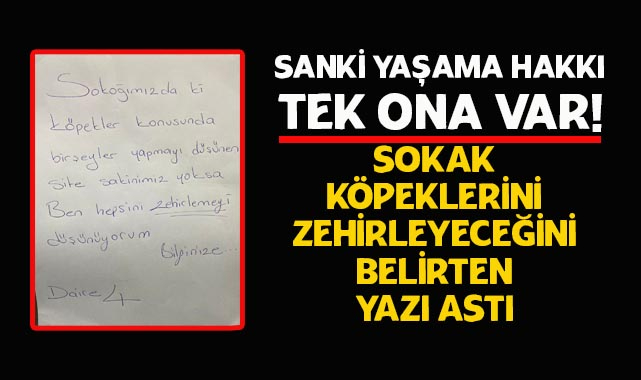 Sokağımızda ki
köpekler konusunda
birşeyler yapmayı düşünen
site sakinimiz yoksa
Ben hepsini zehirlemeyi
düşünüyorum
bilginize...
Daire 4
SANKİ YAŞAMA HAKKI
TEK ONA VAR!
SOKAK
KÖPEKLERİNİ
ZEHİRLEYECEĞİNİ
BELİRTEN
YAZI ASTI